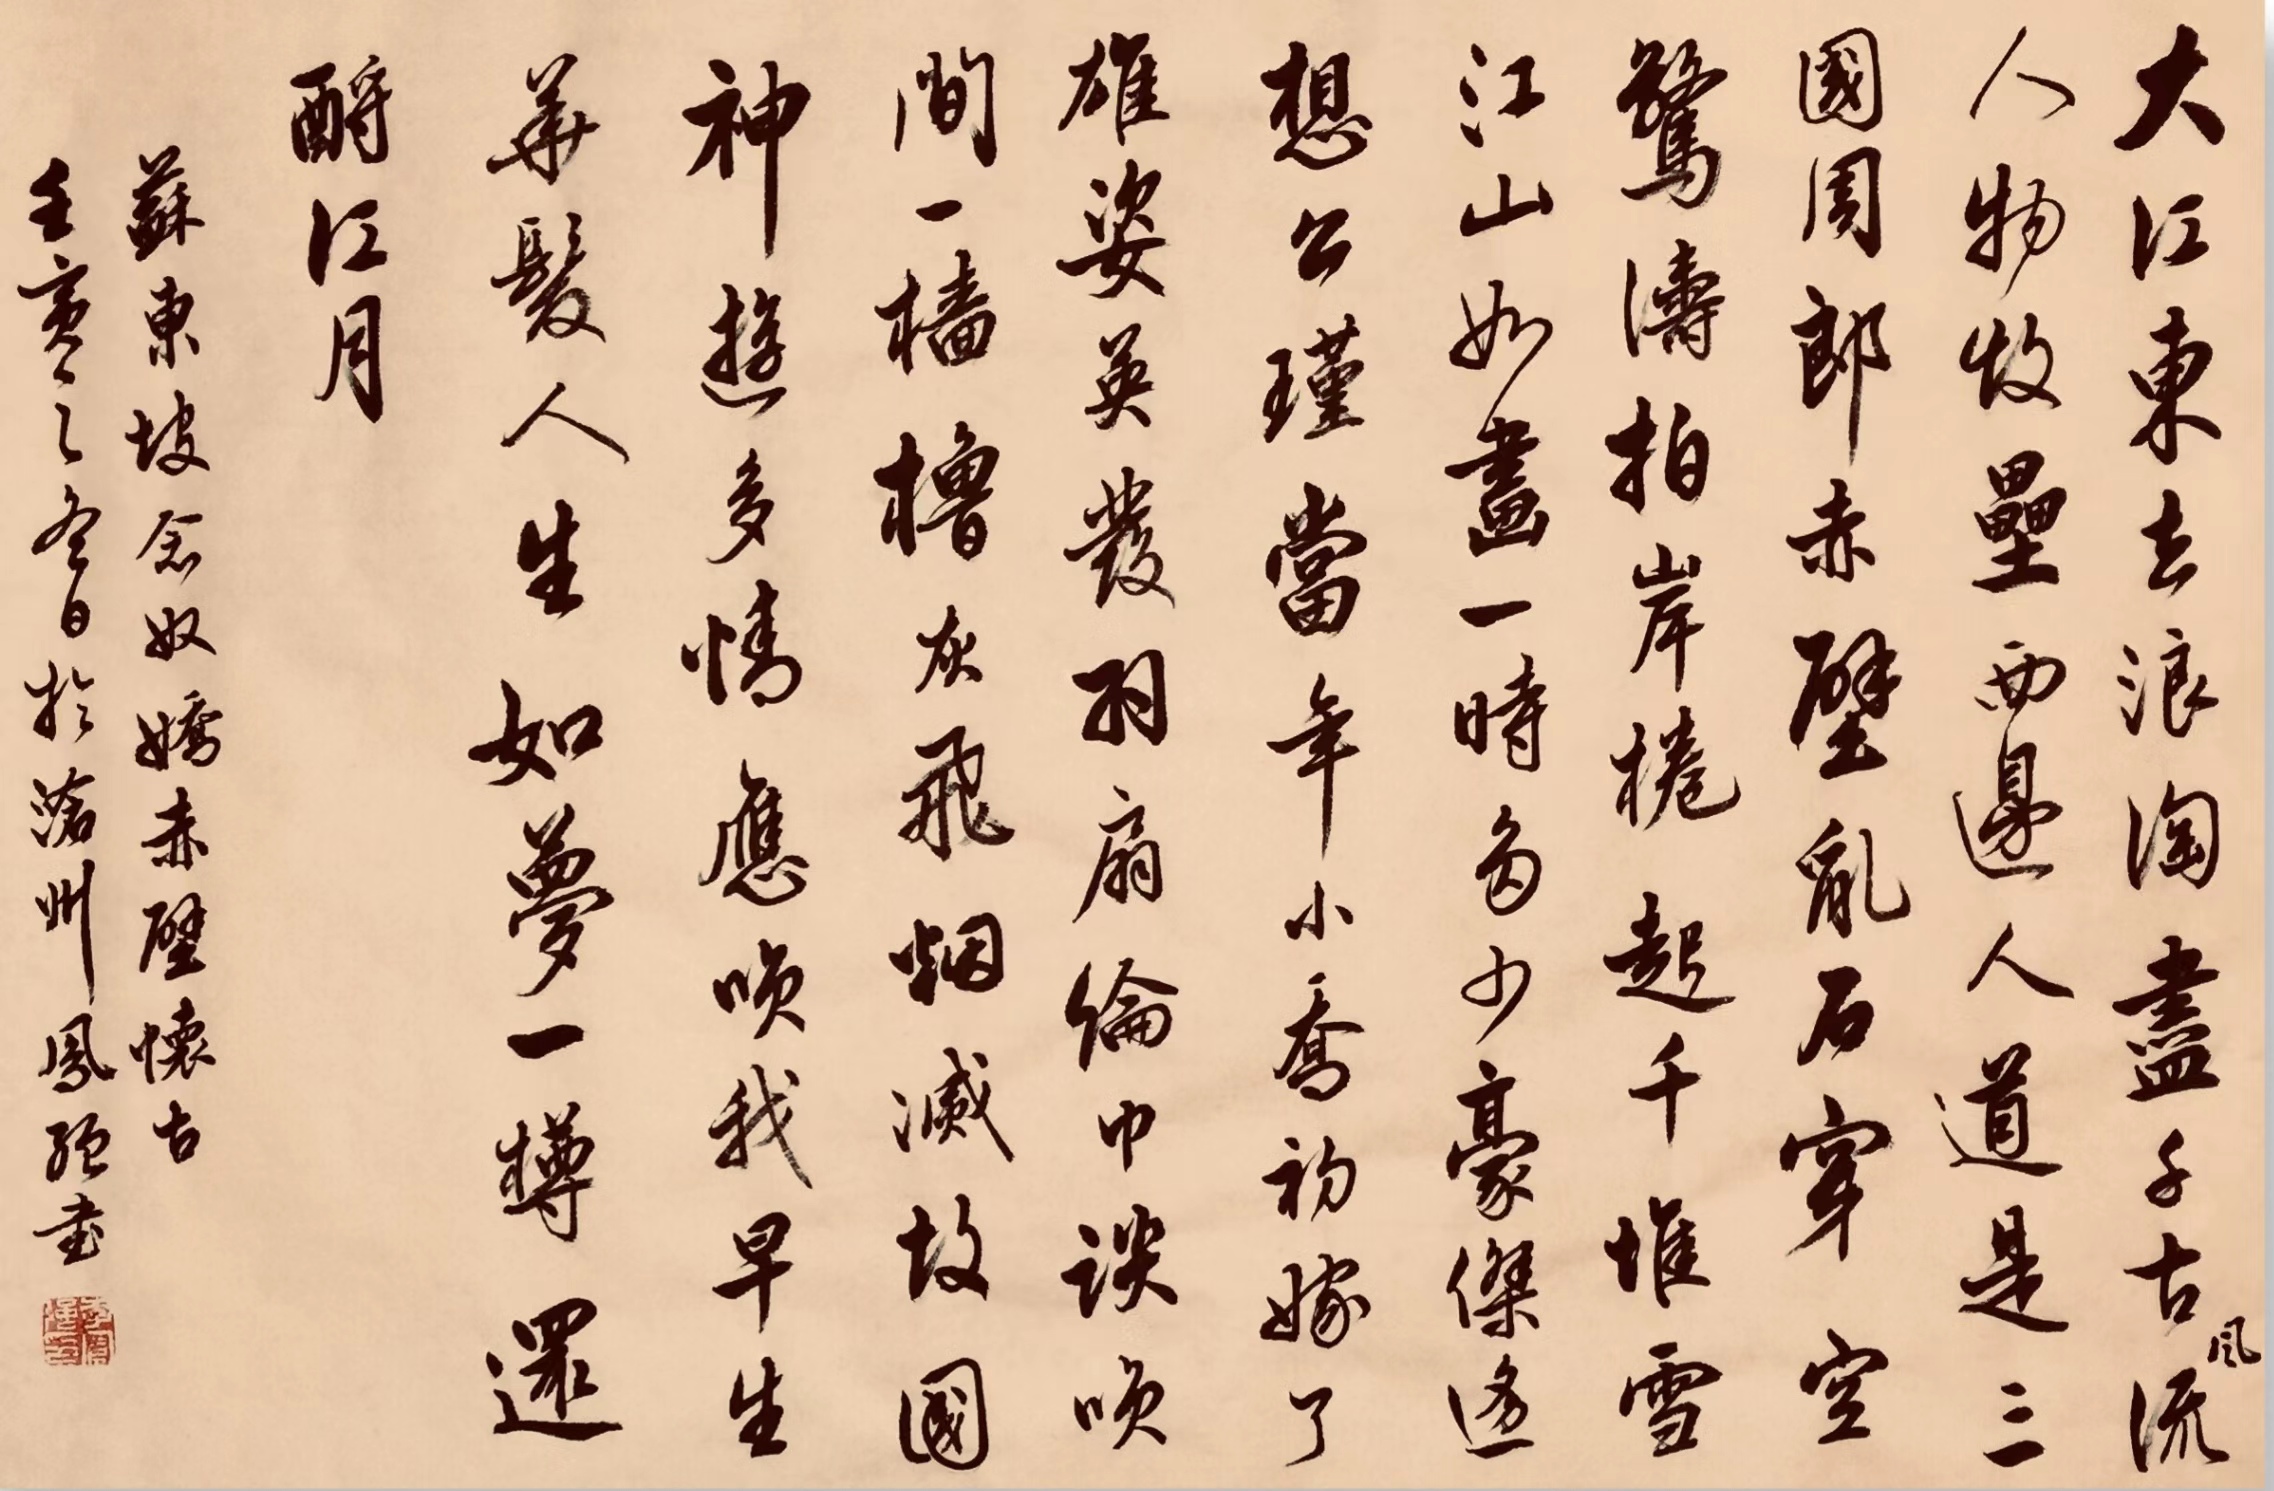 大江東去浪淘盡千古風流
人物故壘西邊人道是三
國周郎赤壁亂石穿空
驚濤拍岸捲起千堆雪
江山如畫一時多少豪傑遙
想公瑾當年小喬初嫁了
雄姿英發羽扇綸巾談咲
間一檣櫓灰飛烟滅故國
神遊多情應咲我早生
華髮人生如夢一樽還
酹江月
蘇東坡念奴嬌赤壁懷古
壬寅之冬日於滄州鳳強書